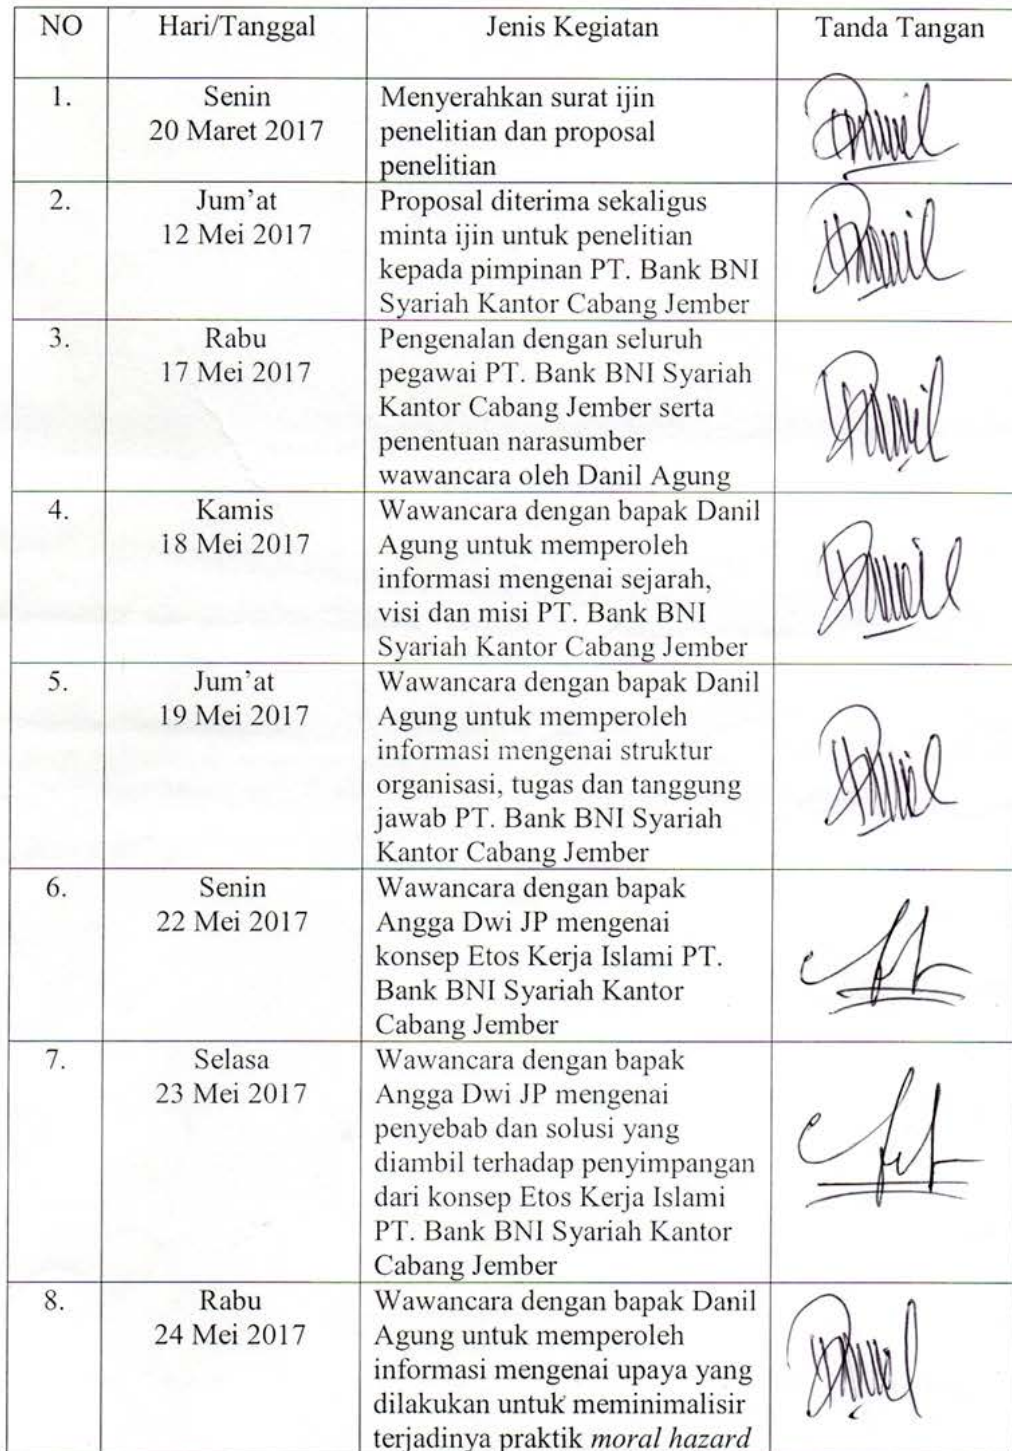 NO Hari/Tanggal Jenis Kegiatan Tanda Tangan
1. Senin Menyerahkan surat ijin
20 Maret 2017 penelitian dan proposal
penelitian
2. Jum'at Proposal diterima sekaligus
12 Mei 2017 minta ijin untuk penelitian
kepada pimpinan PT. Bank BNI
Syariah Kantor Cabang Jember
3. Rabu Pengenalan dengan seluruh
17 Mei 2017 pegawai PT. Bank BNI Syariah
Kantor Cabang Jember serta
penentuan narasumber
wawancara oleh Danil Agung
4. Kamis Wawancara dengan bapak Danil
18 Mei 2017 Agung untuk memperoleh
informasi mengenai sejarah,
visi dan misi PT. Bank BNI
Syariah Kantor Cabang Jember
5. Jum'at Wawancara dengan bapak Danil
19 Mei 2017 Agung untuk memperoleh
informasi mengenai struktur
organisasi, tugas dan tanggung
jawab PT. Bank BNI Syariah
Kantor Cabang Jember
6. Senin Wawancara dengan bapak
22 Mei 2017 Angga Dwi JP mengenai
konsep Etos Kerja Islami PT.
Bank BNI Syariah Kantor
Cabang Jember
7. Selasa Wawancara dengan bapak
23 Mei 2017 Angga Dwi JP mengenai
penyebab dan solusi yang
diambil terhadap penyimpangan
dari konsep Etos Kerja Islami
PT. Bank BNI Syariah Kantor
Cabang Jember
8. Rabu Wawancara dengan bapak Danil
24 Mei 2017 Agung untuk memperoleh
informasi mengenai upaya yang
dilakukan untuk meminimalisir
terjadinya praktik moral hazard